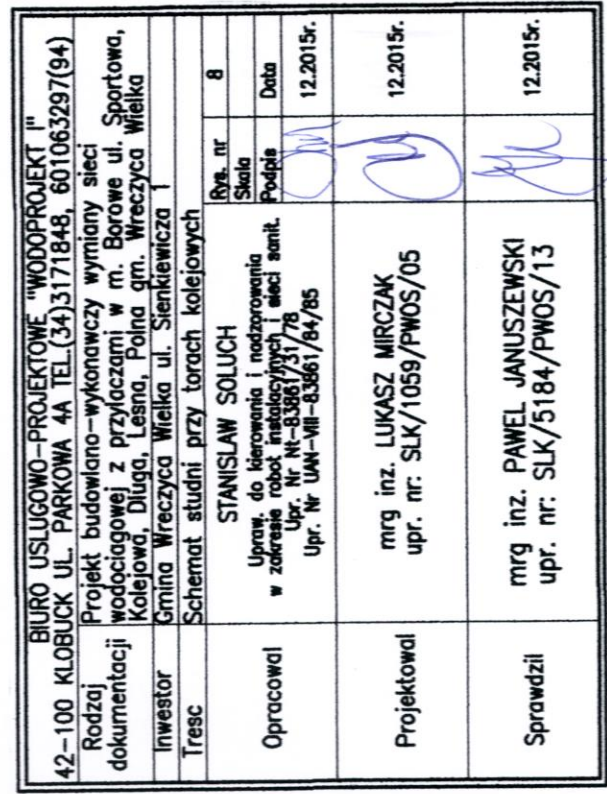 BIURO USLUGOWO-PROJEKTOWE "WODOPROJEKT I"
42-100 KLOBUCK UL. PARKOWA 4A TEL.(34)3171848, 601063297(94)
Rodzaj dokumentacji
Projekt budowlano-wykonawczy wymiany sieci
wodociagowej z przylaczami w m. Borowe ul. Sportowa,
Kolejowa, Dluga, Lesna, Polna gm. Wreczyca Wielka
Inwestor Gmina Wreczyca Wielka ul. Sienkiewicza 1
Tresc Schemat studni przy torach kolejowych
Rys. nr 8
Skala
Podpis Data
Opracowal
STANISLAW SOLUCH
Upraw. do kierowania i nadzorowania
w zakresie robot instalacyjnych i sieci sanit.
Upr. Nr Nt-83861/31/78
Upr. Nr UAN-VIII-83861/84/85
12.2015r.
Projektowal
mrg inz. LUKASZ MIRCZAK
upr. nr: SLK/1059/PWOS/05
12.2015r.
Sprawdzil
mrg inz. PAWEL JANUSZEWSKI
upr. nr: SLK/5184/PWOS/13
12.2015r.